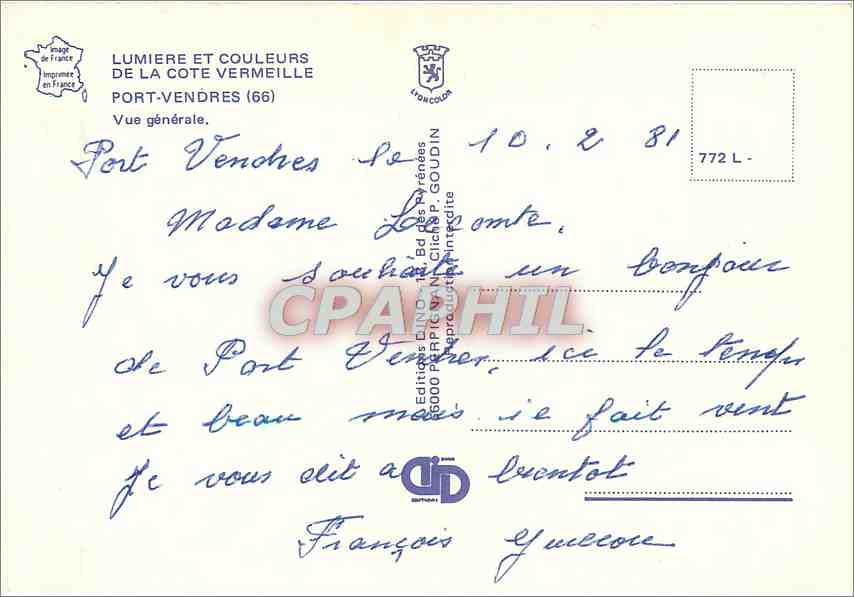 Image
de France
Imprimée
en France
LUMIERE ET COULEURS
DE LA COTE VERMEILLE
PORT-VENDRES (66)
Vue générale.
LYONCOLOR
772 L -
Port Vendres le 10.2 81
Madame Lecomte.
Je vous souhaite un bonjour
de Port Vendres, ici le temps
et beau mais ie fait vent
Je vous dit a bientot
François
Editions DINO - 14, Bd des Pyrénées
66000 PERPIGNAN - Cliché P. GOUDIN
Reproduction interdite
CPAPHIL